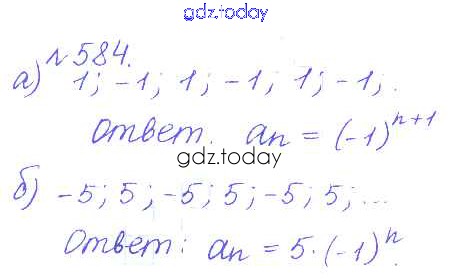 gdz.today
№584.
а) 1; -1; 1; -1; 1; -1; .
Ответ. an = (-1)^n+1
gdz.today
б) -5; 5; -5; 5; -5; 5; ...
Ответ: an = 5·(-1)^n.